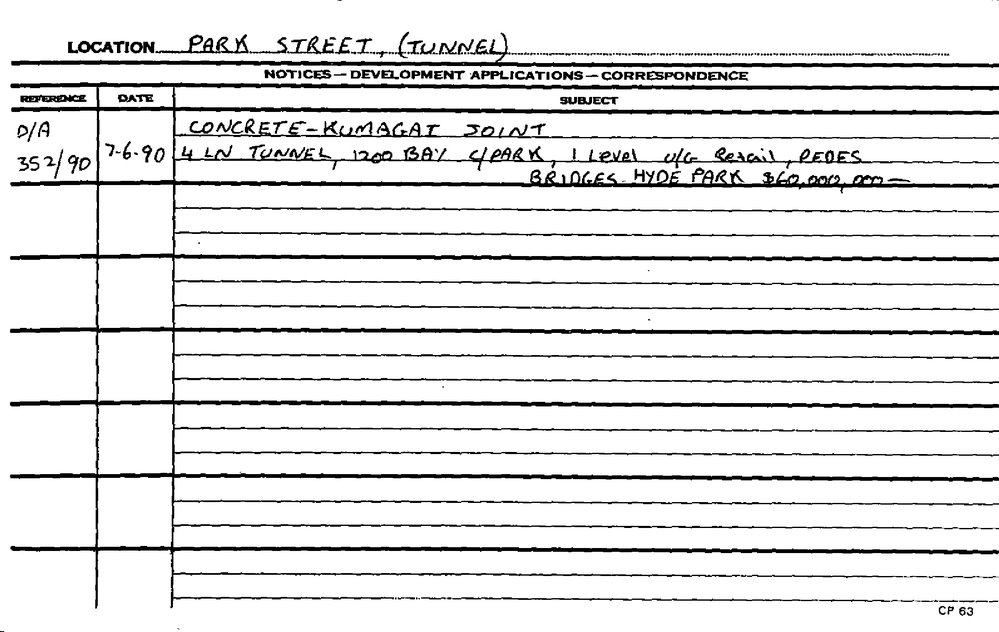 LOCATION PARK STREET, (TUNNEL)
NOTICES — DEVELOPMENT APPLICATIONS — CORRESPONDENCE
REFERENCE DATE SUBJECT
D/A CONCRETE-KUMAGAI JOINT
352/90 7-6-90 4 LN TUNNEL, 1200 BAY C/PARK, 1 Level U/G Retail, PEDES
BRIDGES HYDE PARK $60,000,000—
CP 63